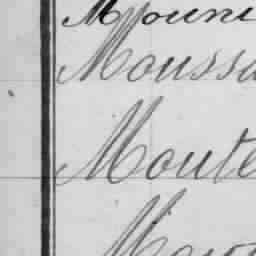 Mouni
Moussa
Moute
Mou